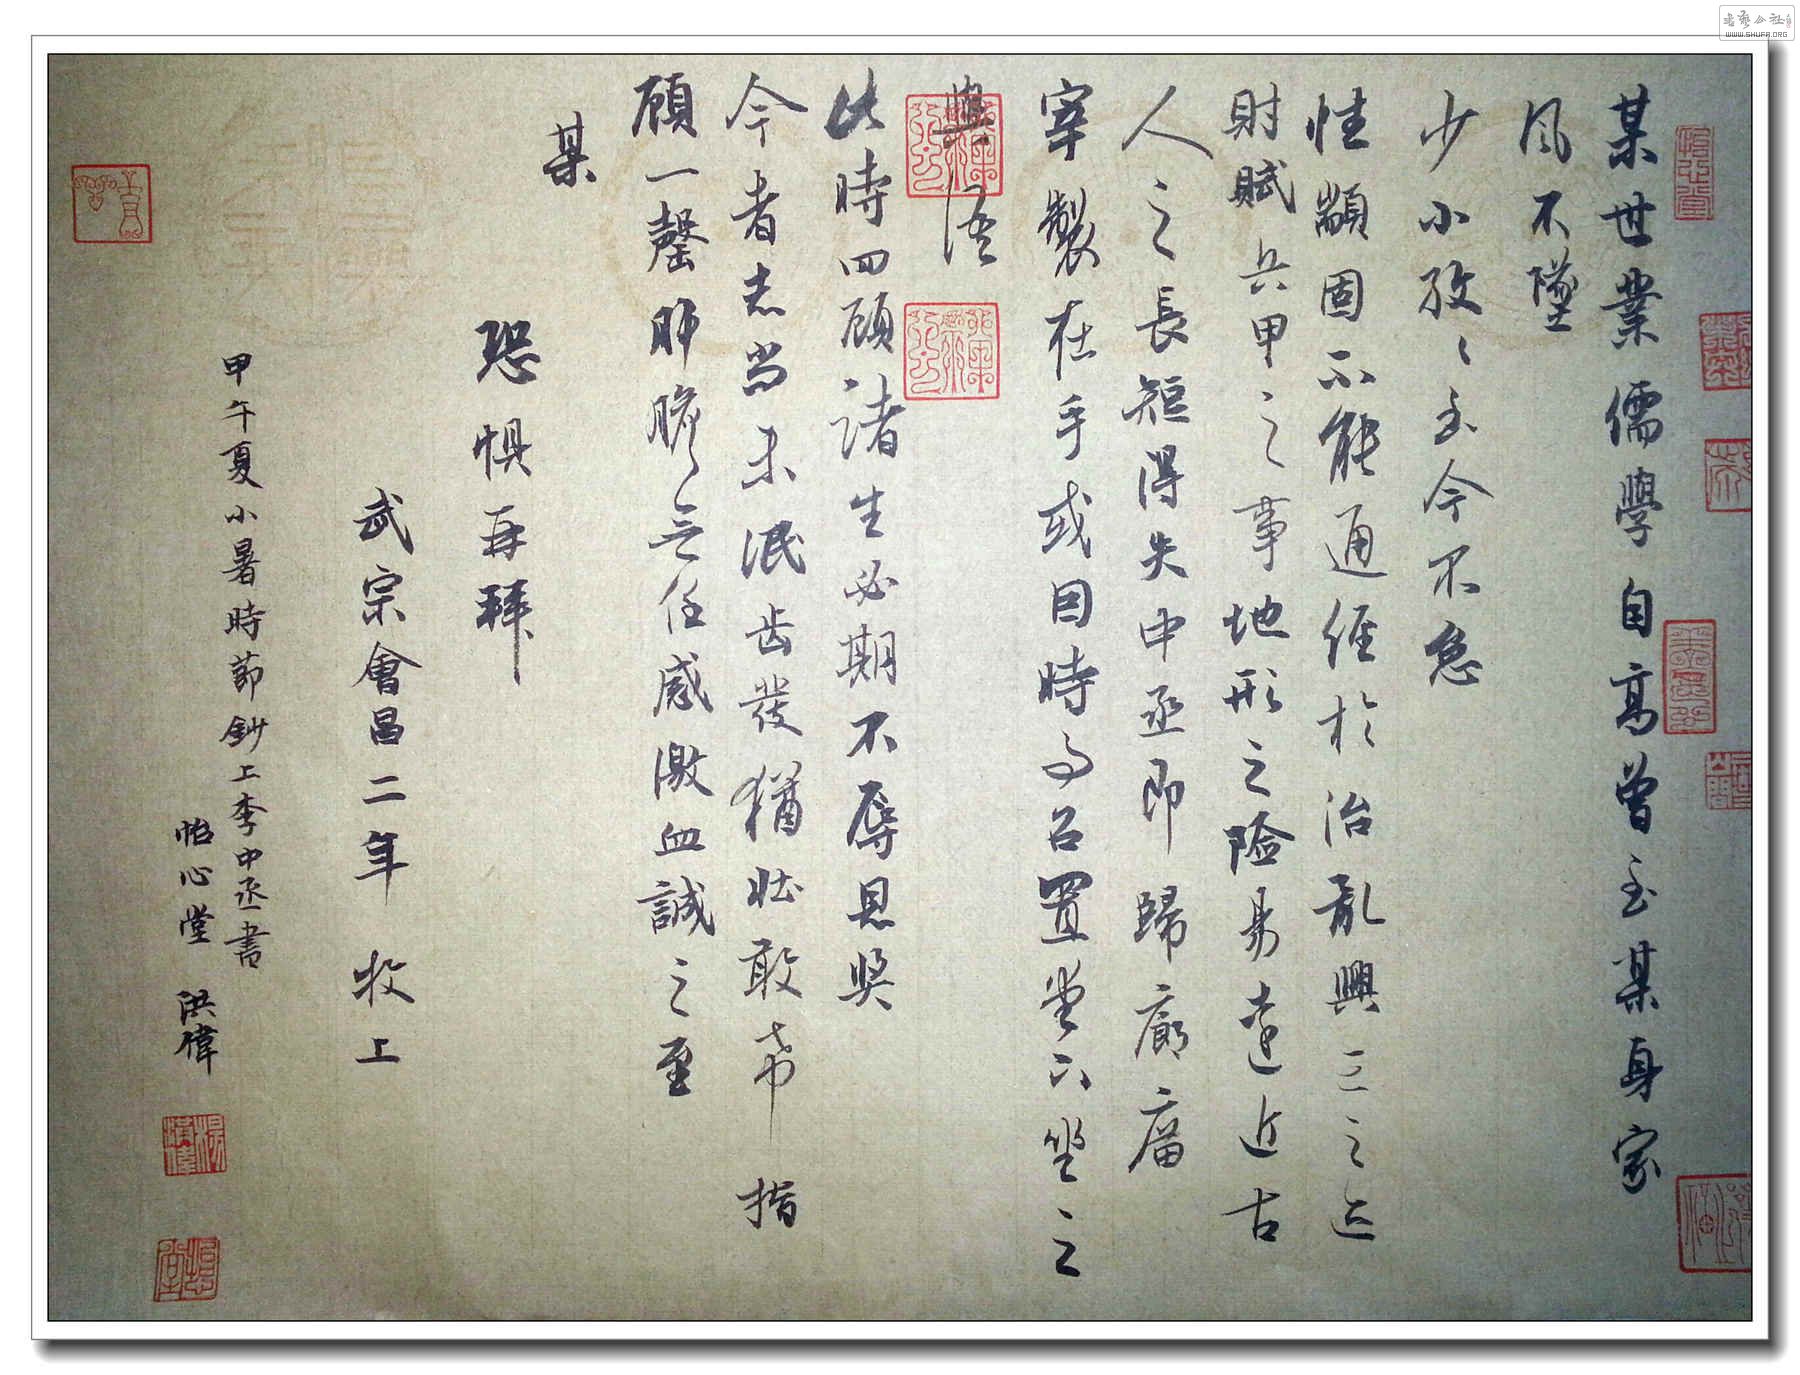 某世業儒學自高曾至某身家
風不墜
少小孜孜至今不怠
性顓固不能通經於治亂興亡之迹
財賦兵甲之事地形之險易遠近古
人之長短得失中丞即歸廊廟
宰製在手或因時事召置堂下坐之
與語
此時回顧諸生必期不辱恩奬
今者志尚未泯齿發猶壯敢希指
顧一罄肝膽无任感激血誠之至
某
恐惧再拜
武宗會昌二年 牧上
甲午夏小暑時節鈔上李中丞書
怡心堂 洪偉
书艺公社
WWW.SHUFA.ORG